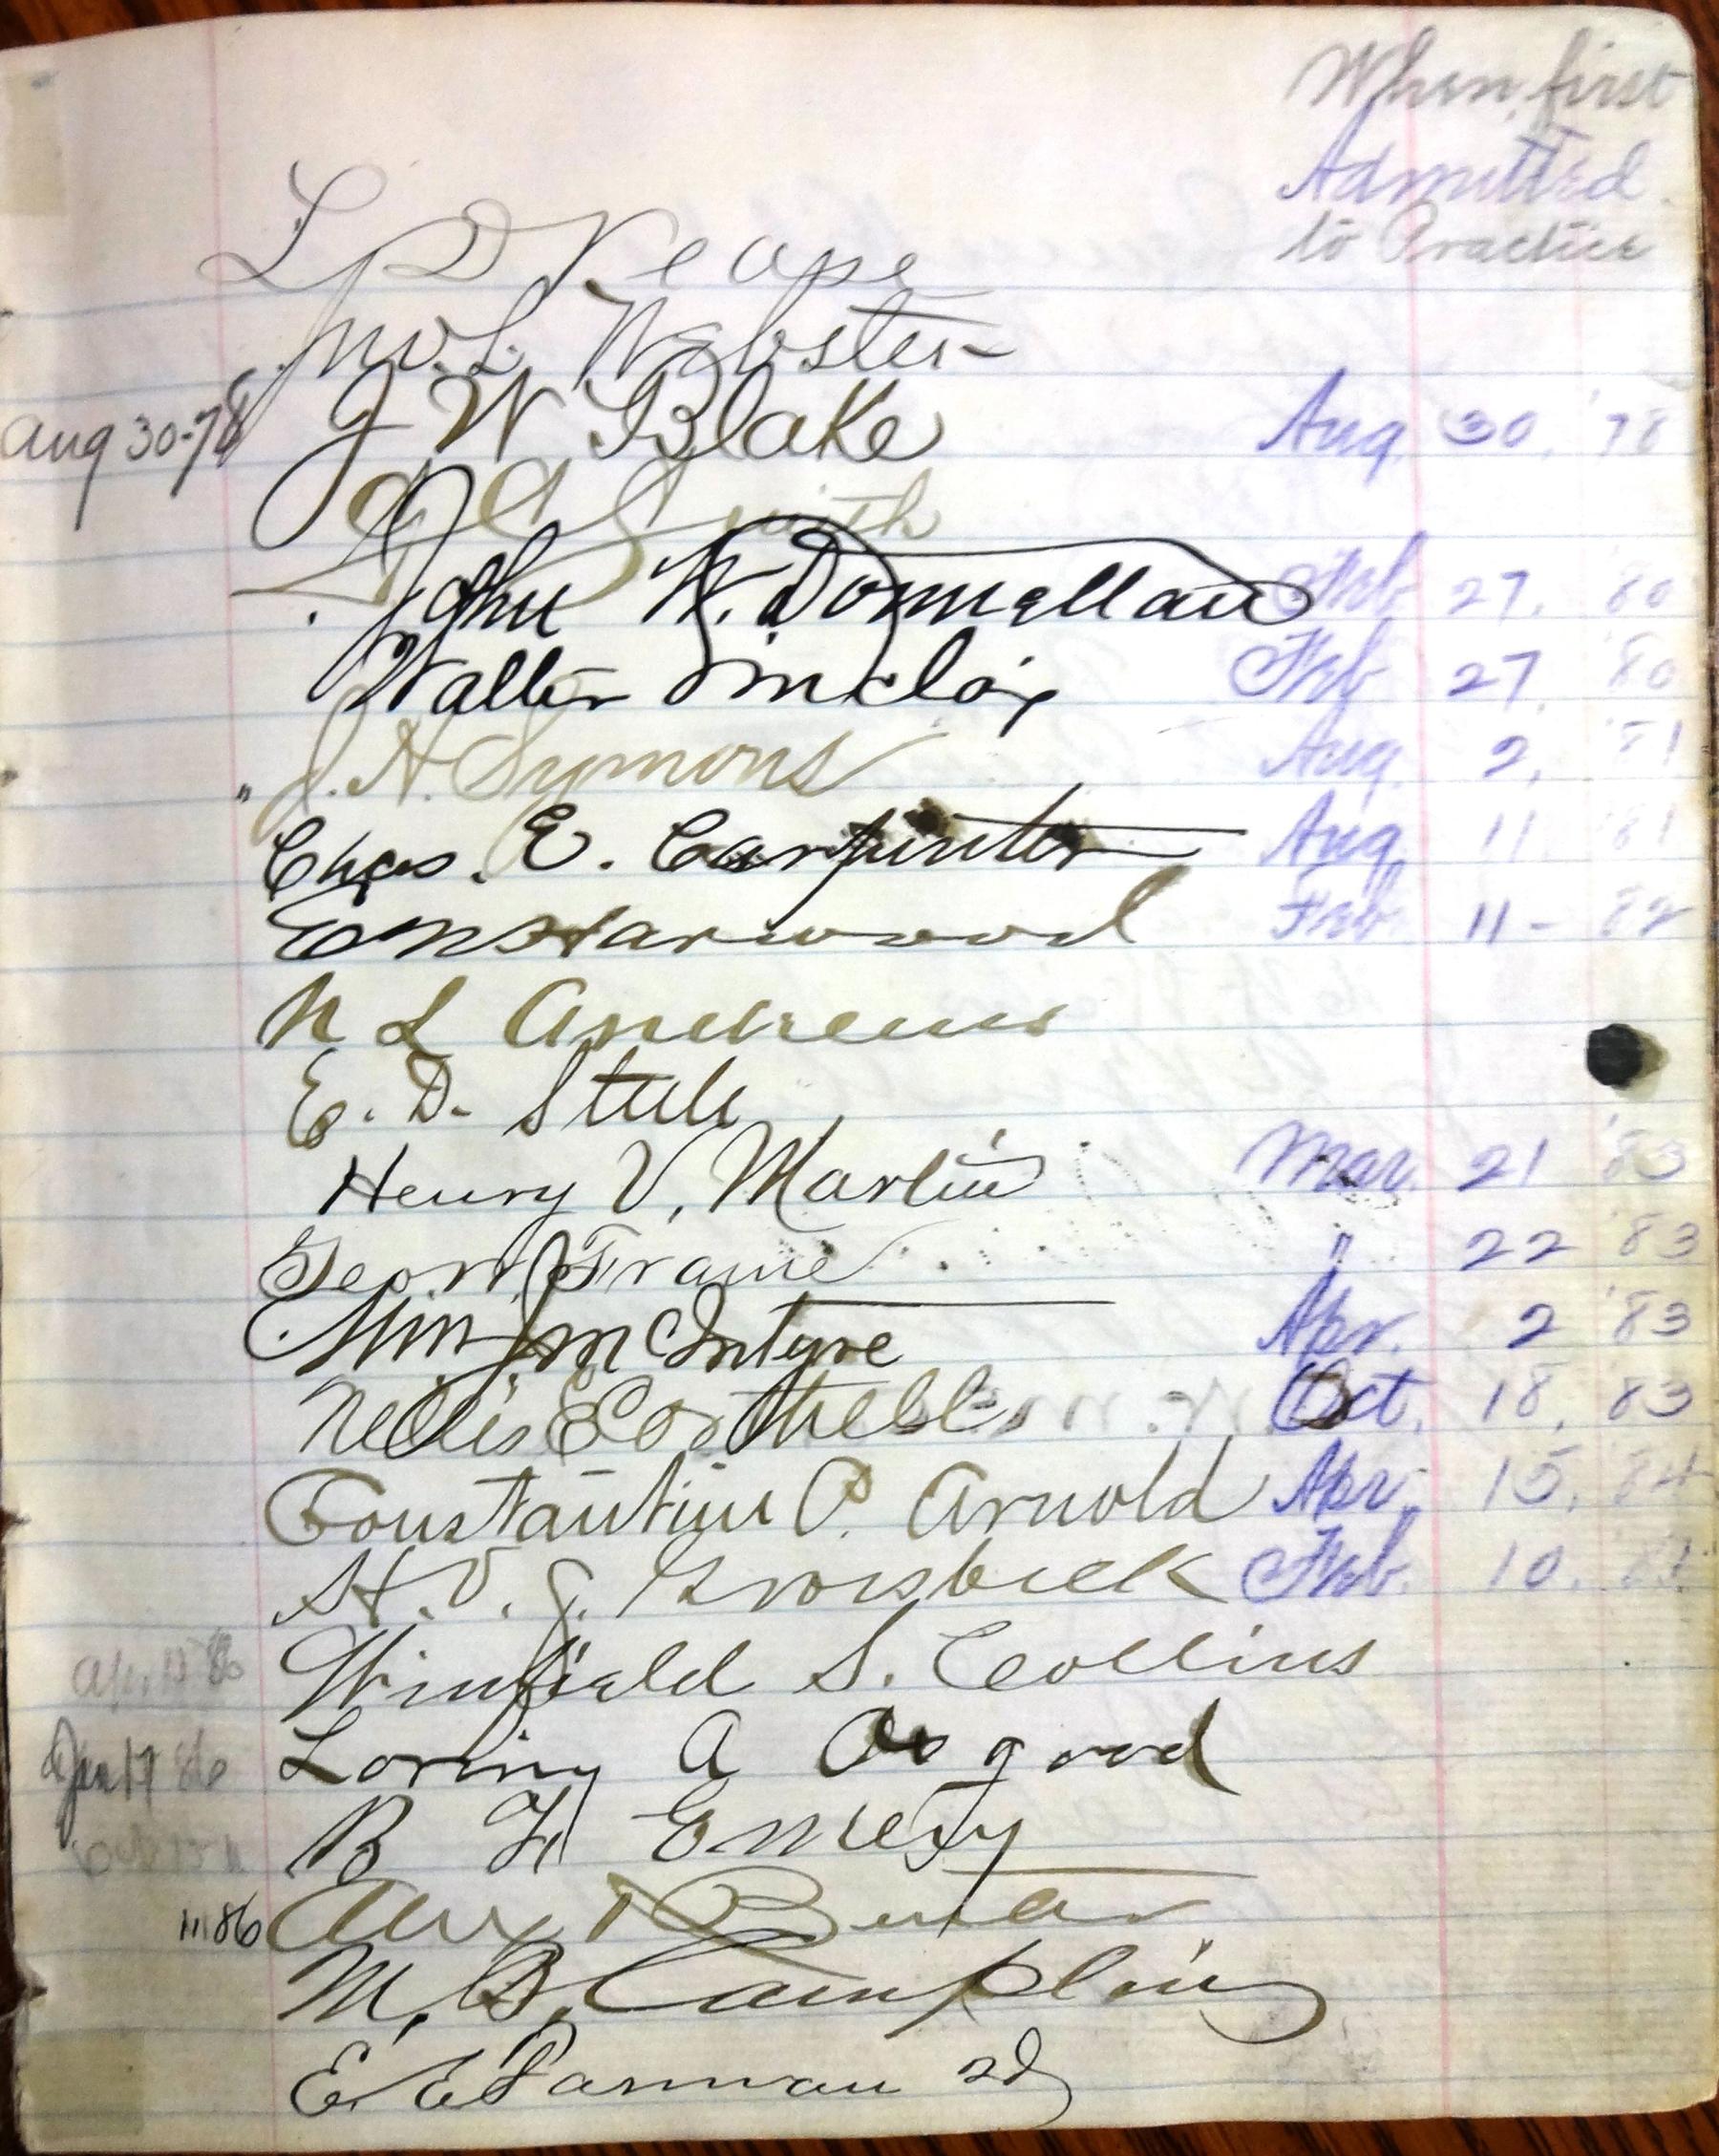 When first
Admitted
to Practice
L D Pease
Jno. L. Webster
Aug 30-78 J W Blake Aug 30, '78
Smith
John W. Donnellan Feb 27, '80
Walter Sinclair Feb 27, '80
J. H. Symons Aug. 2, '81
Chas. E. Carpenter Aug 11 '81
Harwood Feb. 11- 82
N L Andrews
E. D. Steele
Henry V. Martin Mar. 21 '83
Geo. W. Frame " 22 '83
Wm J McIntyre Apr. 2 '83
Nellis E Corthell Oct. 18, 83
Constantine P. Arnold Apr. 15, '84
H. V. S. Groesbeck Feb. 10,
Winfield S. Collins
Loring A Osgood
B F Emery
M. B. Camplin
E E Parman 2d